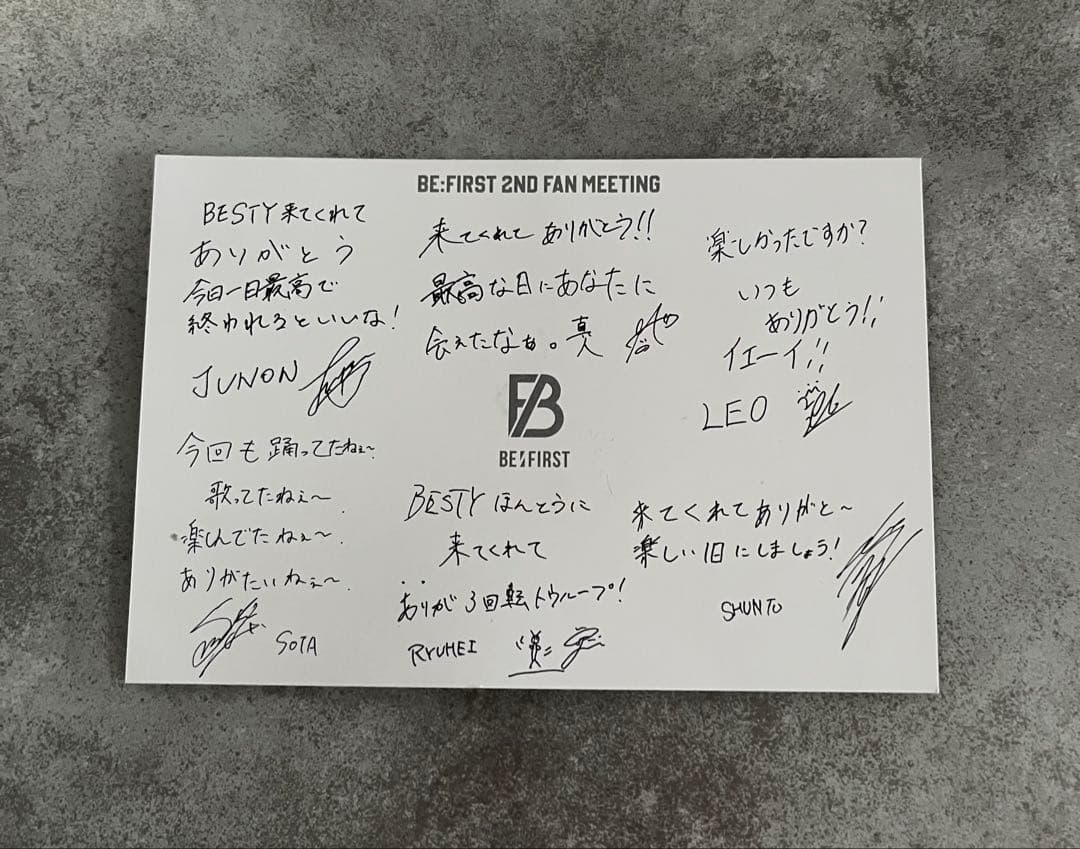 BE:FIRST 2ND FAN MEETING
BESTY 来てくれて
ありがとう
今日一日最高で
終われるといいな!
JUNON
来てくれて ありがとう!!
最高な日にあなたに
会えたなぁ。真人
楽しかったですか?
いつも
ありがとう!!
イエーイ!!
LEO
BE:FIRST
今回も踊ってたねぇ〜
歌ってたねぇ〜
楽しんでたねぇ〜
ありがたいねぇ〜
SOTA
BESTY ほんとうに
来てくれて
ありが3回転トウループ!
RYUHEI
来てくれてありがと〜
楽しい1日にしましょう!
SHUNTO